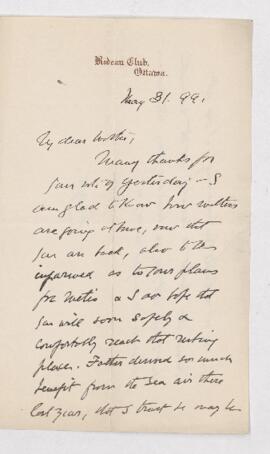 Rideau Club,
Ottawa.
May 31. 99.
My dear Mother,
Many thanks for
your note of yesterday – I
am glad to know how matters
are going at home, now that
you are back, also to be
informed as to your plans
for Metis & I do hope that
you will soon safely &
comfortably reach that resting
place. Father derived so much
benefit from the sea air there
last year, that I trust he may be